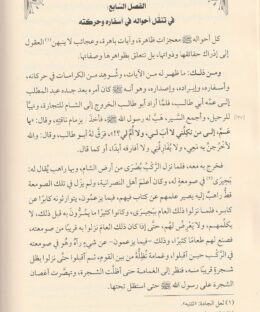 الفصل السابع:
في تنقل أحواله في أسفاره وحركته
كل أحواله ﷺ معجزات ظاهرة، وآيات باهرة، وعجائب لا ينبهن(١) العقول
إلى إدراك حقائقها وذواتها، بل تتعلق بظواهرها وصفاتها.
ومن ذلك: ما ظهر له من الآيات، وشُوهِد من الكرامات في حركاته،
وأسفاره، وإيراده، وإصداره، وهو أنه ﷺ كان أمره بعد جده عبد المطلب
إلى عمه أبي طالب، فلما أراد أبو طالب الخروج إلى الشام للتجارة، وتهيأ
للرحيل، وأجمع السير، هَبَّ له رسول الله ﷺ، فأخذ بزمام ناقته، وقال: يا
عم، إلى من تكلني لا أب لي، ولا أم لي؟!، فرقَّ له أبو طالب، وقال: والله
لأخرجنَّ به معي، ولا يُفارقني ولا أفارقه أبدًا، أو كما قال.
فخرج به معه، فلما نزل الركب بُصرى من أرض الشام، وبها راهب يُقال له:
بحيرى في صومعة له، وكان أعلم أهل النصرانية، ولم يزل في تلك الصومعة
قط راهبٌ إليه يصير علمهم عن كتاب فيهم، فيما يزعمون، يتوارثونه كابرًا عن
كابر، فلما نزلوا ذلك العام ببحيرى، وكانوا كثيرًا ما يمرون به قبل ذلك، لا
يكلمهم، ولا يعرض لهم، حتى إذا كان ذلك العام، نزلوا به قريبًا من صومعته،
فصنع لهم طعامًا كثيرًا، وذلك – فيما يزعمون- عن شيءٍ رآه وهو في صومعته،
في الركب حين أقبلوا، وغمامة تُظلُّه من بين القوم، ثم أقبلوا حتى نزلوا بظل
شجرةٍ قريبًا منه، فنظر إلى الغمامة حتى أظلت الشجرة، وتهصَّرت أغصان
الشجرة على رسول الله ﷺ حتى استظل تحتها.
(١) لعل الجادة: